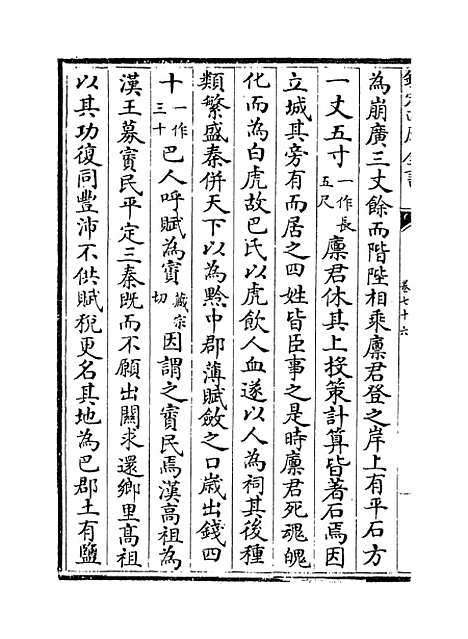 欽定四庫全書
卷七十六
為崩廣三丈餘而階陛相乘廪君登之岸上有平石方
一丈五寸一作長五尺廪君休其上投策計算皆著石焉因
立城其旁有而居之四姓皆臣事之是時廪君死魂魄
化而為白虎故巴氏以虎飲人血遂以人為祠其後種
類繁盛秦併天下以為黔中郡薄賦斂之口歲出錢四
十一作三十巴人呼賦為賨藏宗切因謂之賨民焉漢高祖為
漢王募賨民平定三秦既而不願出關求還鄉里高祖
以其功復同豐沛不供賦稅更名其地為巴郡土有鹽